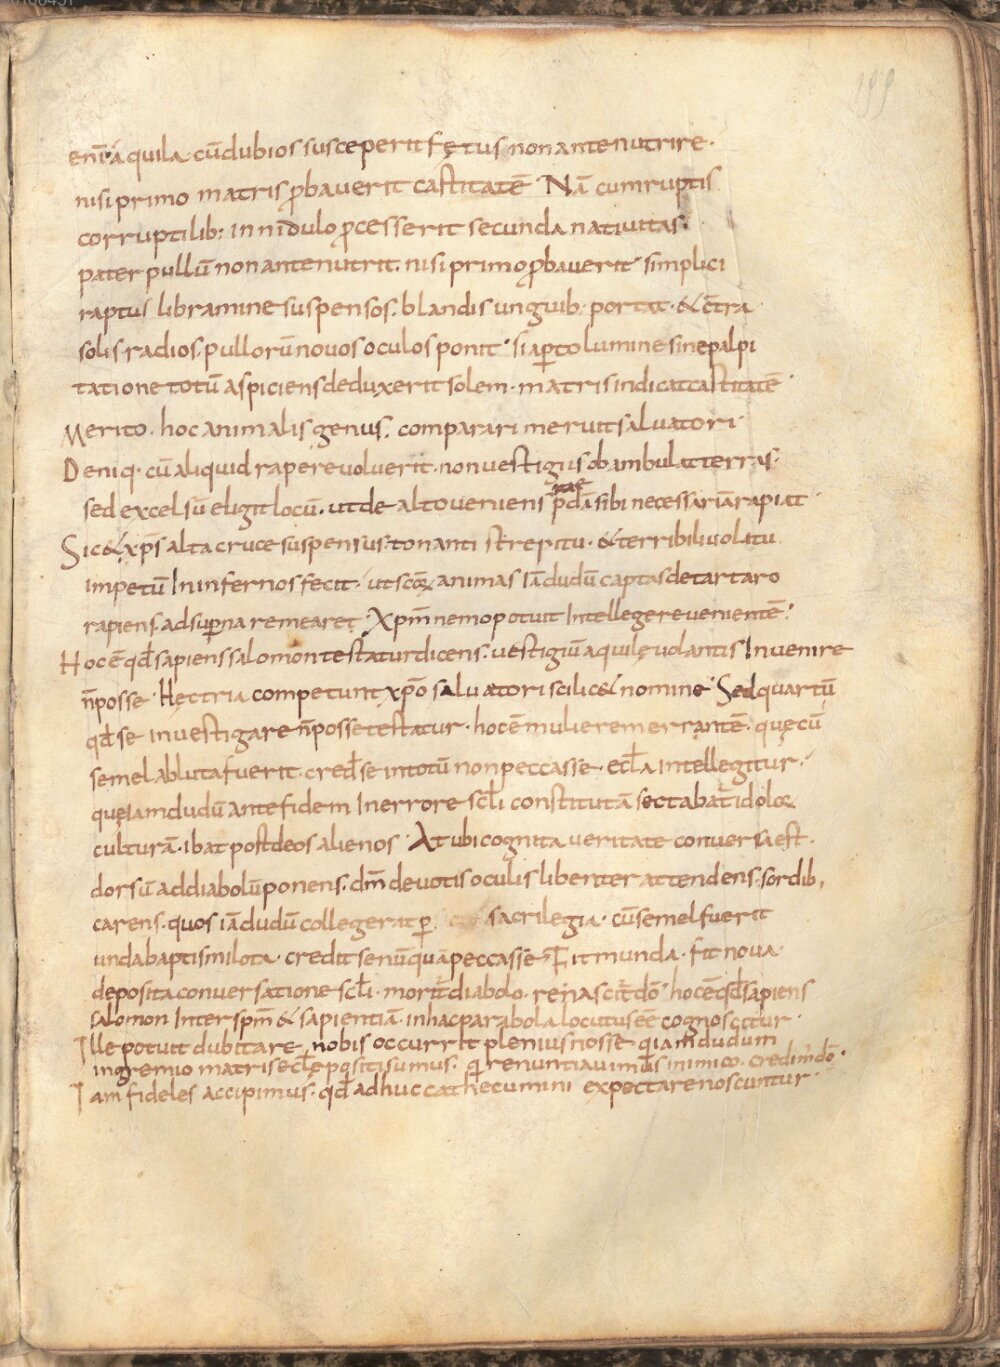 enī aquila cū dubios susceperit fętus non ante nutrire·
nisi primo matris p̄bauerit castitatē· Nā cum ruptis
corruptilib: in nidulo p̄cesserit secunda natiuitas·
pater pullū non ante nutrit. nisi primo p̄bauerit· simplici
raptus libramine suspensos. blandis unguib· portat· & ctra
solis radios pullorū nouos oculos ponit· si apto lumine sine palpi
tatione totū aspiciens deduxerit solem· matris indicat castitatē·
Merito· hoc animalis genus. comparari meruit saluatori·
Deniq· cū aliquid rapere uoluerit· non uestigiis obambulat terras·
sed excelsū eligit locū. ut de alto ueniens p̄dā sibi necessariā rapiat·
Sic & xp̄s alta cruce suspensus· tonanti strepitu· & terribili uolitu
impetū In infernos fecit· ut scōꝝ animas Iā dudū captas de tartaro
rapiens ad sup̱na remearet· Xp̄m nemo potuit Intellegere uenientē·
Hoc ē qd̄ sapiens salomon testatur dicens· uestigiū aquilę uolantis Inuenire
n̄ posse· Hęc tria competunt xp̄o saluatori scilic& nomine· Sed quartū
qd̄ se inuestigare n̄ posse testatur· hoc ē mulierem errantē· quę cū
semel abluta fuerit· cred̄ se in totū non peccasse· eccl̄a Intellegitur·
quę iam dudū ante fidem In errore scl̄i constituta sectabat̄ idoloꝝ
culturā· ibat post deos alienos· At ubi cognita ueritate conuersa est·
dorsū ad diabolū ponens· dm̄ deuotis oculis libenter attendens sordib,
carens· quos iā dudū collegerat p̱ sacrilegia· cū semel fuerit
unda baptismi lota· credit se nūquā peccasse· Fit munda· fit noua·
deposita conuersatione scl̄i· morit̄ diabolo· renascit̄ dō· hoc ē qd̄ sapiens
salomon Inter spm̄ & sapientiā· in hac parabola locutus eē cognoscitur·
Ille potuit dubitare, nobis occurrit plenius nosse qiam dudum
in gremio matris eccl̄ę positi sumus· q renuntiauim̄ dˢ inimico· credim̄ dō·
Iam fideles accipimus· qd̄ adhuc cathecumini expectare noscuntur·